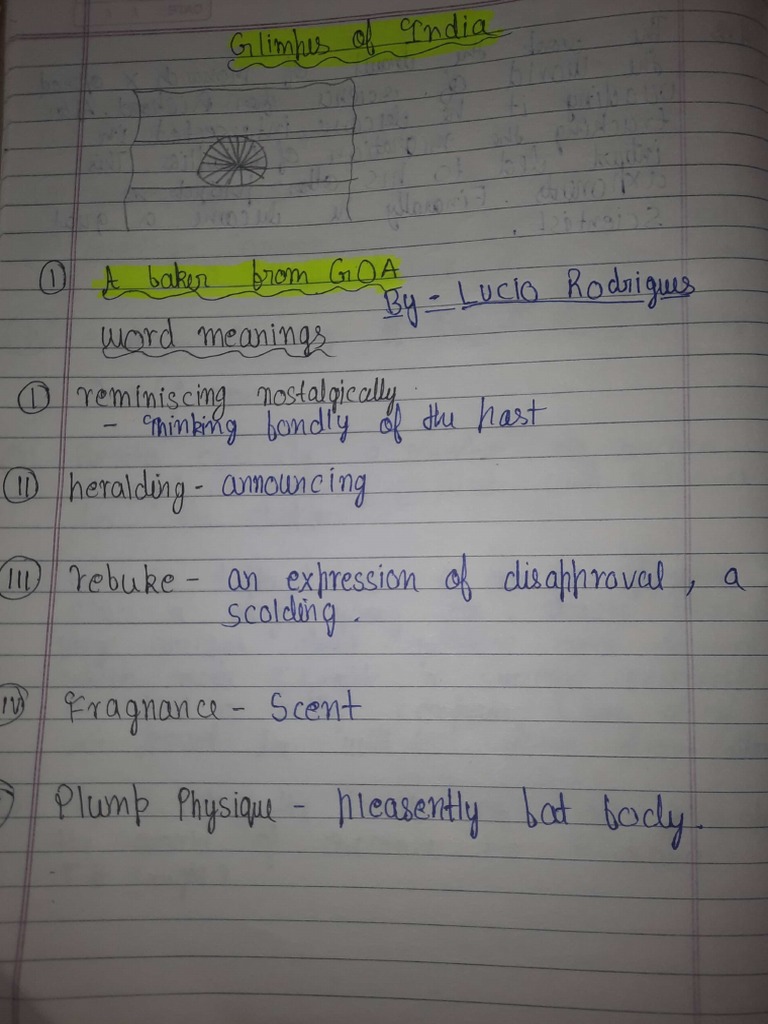 Glimpes of India
① A baker from GOA
By - Lucio Rodrigues
word meanings
① reminiscing nostalgically
- thinking fondly of the past
② heralding - announcing
③ rebuke - an expression of disapproval, a
scolding.
④ Fragnance - Scent
Plump Physique - pleasently fat body.